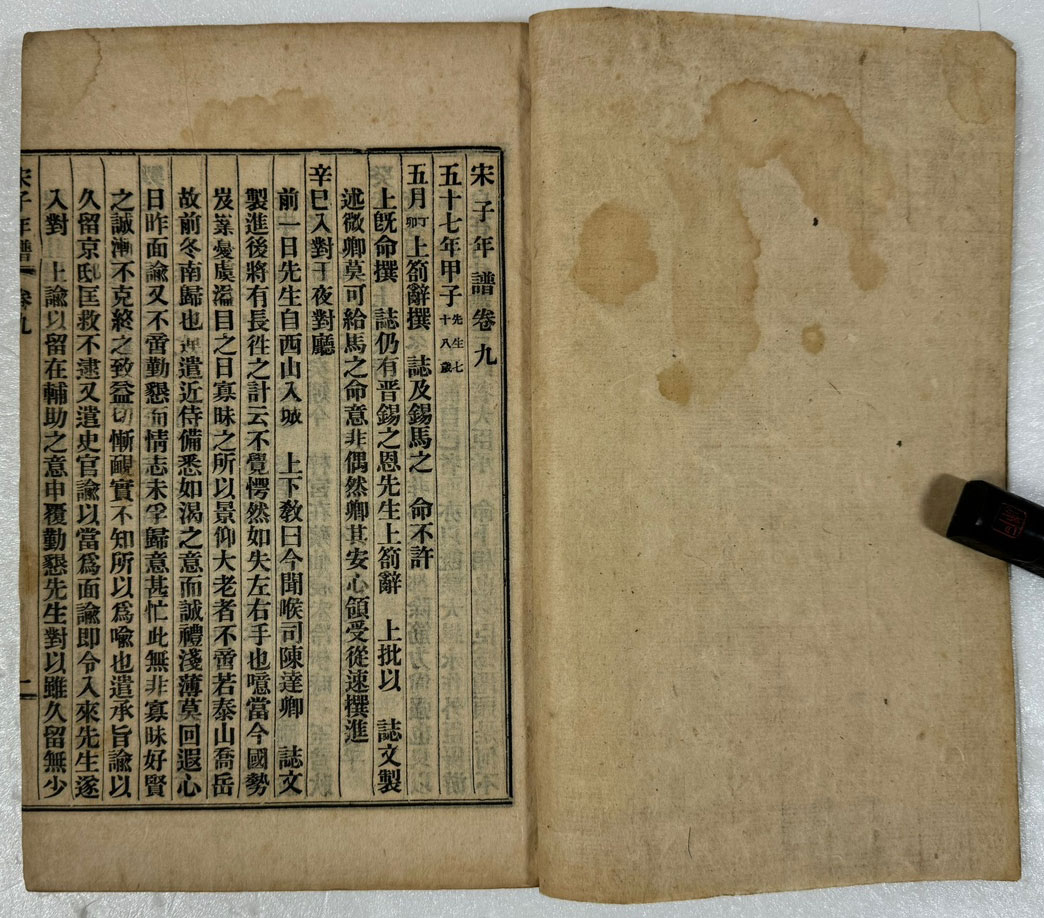 宋子年譜卷九
五十七年甲子先生七十八歲
五月丁卯上箚辭撰 誌及錫馬之 命不許
上旣命撰 誌仍有晋錫之恩先生上箚辭 上批以 誌文製
述微卿莫可給馬之命意非偶然卿其安心領受從速撰進
辛巳入對于夜對廳
前一日先生自西山入城 上下敎曰今聞喉司陳達卿 誌文
製進後將有長徃之計云不覺愕然如失左右手也噫當今國勢
岌業憂虞溢目之日寡昧之所以景仰大老者不啻若泰山喬岳
故前冬南歸也 遣近侍備悉如渴之意而誠禮淺薄莫回遐心
日昨面諭又不啻勤懇而情志未孚歸意甚忙此無非寡昧好賢
之誠漸不克終之致益切慚靦實不知所以爲喩也遣承旨諭以
久留京邸匡救不逮又遣史官諭以當爲面諭即令入來先生遂
入對 上諭以留在輔助之意申覆勤懇先生對以雖久留無少
宋子年譜 卷九 一